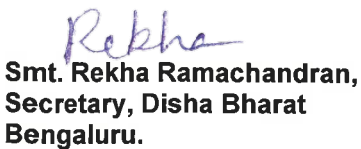 Rekha
Smt. Rekha Ramachandran,
Secretary, Disha Bharat
Bengaluru.